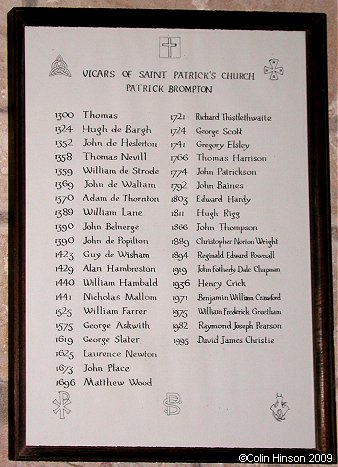 VICARS OF SAINT PATRICK'S CHURCH
PATRICK BROMPTON
1300 Thomas
1324 Hugh de Bargh
1352 John de Heslerton
1358 Thomas Nevill
1359 William de Strode
1369 John de Waltam
1370 Adam de Thornton
1389 William Lane
1390 John Belnerge
1390 John de Popilton
1423 Guy de Wisham
1429 Alan Hambreston
1440 William Hambald
1441 Nicholas Mallom
1525 William Farrer
1575 George Askwith
1619 George Slater
1625 Laurence Newton
1673 John Place
1696 Matthew Wood
1721 Richard Thistlethwaite
1724 George Scott
1741 Gregory Elsley
1766 Thomas Harrison
1774 John Patrickson
1792 John Baines
1803 Edward Hardy
1811 Hugh Rigg
1866 John Thompson
1889 Christopher Norton Wright
1894 Reginald Edward Pownall
1919 John Fotherly Dale Chapman
1936 Henry Crick
1971 Benjamin William Crawford
1975 William Frederick Greetham
1982 Raymond Joseph Pearson
1995 David James Christie
©Colin Hinson 2009